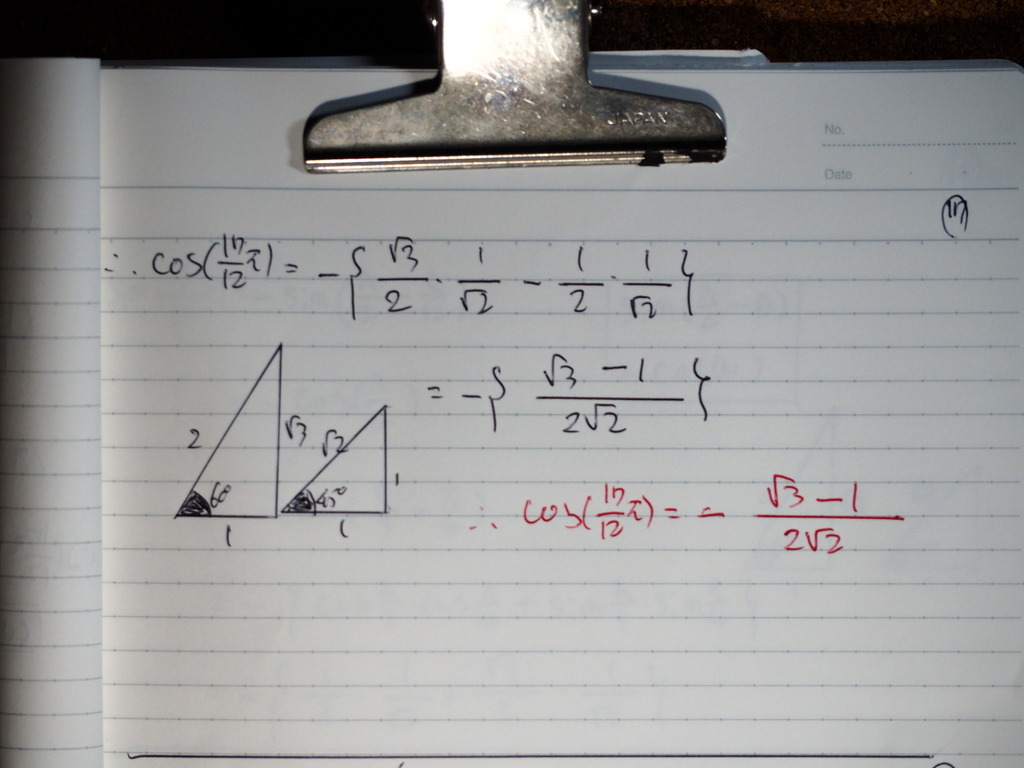 JAPAN
No.
Date
(17)
∴ cos(17/12 π) = -{ √3/2 · 1/√2 - 1/2 · 1/√2 }
= -{ (√3 - 1)/(2√2) }
2 √3 60° 1
√2 45° 1 1
∴ cos(17/12 π) = - (√3 - 1)/(2√2)